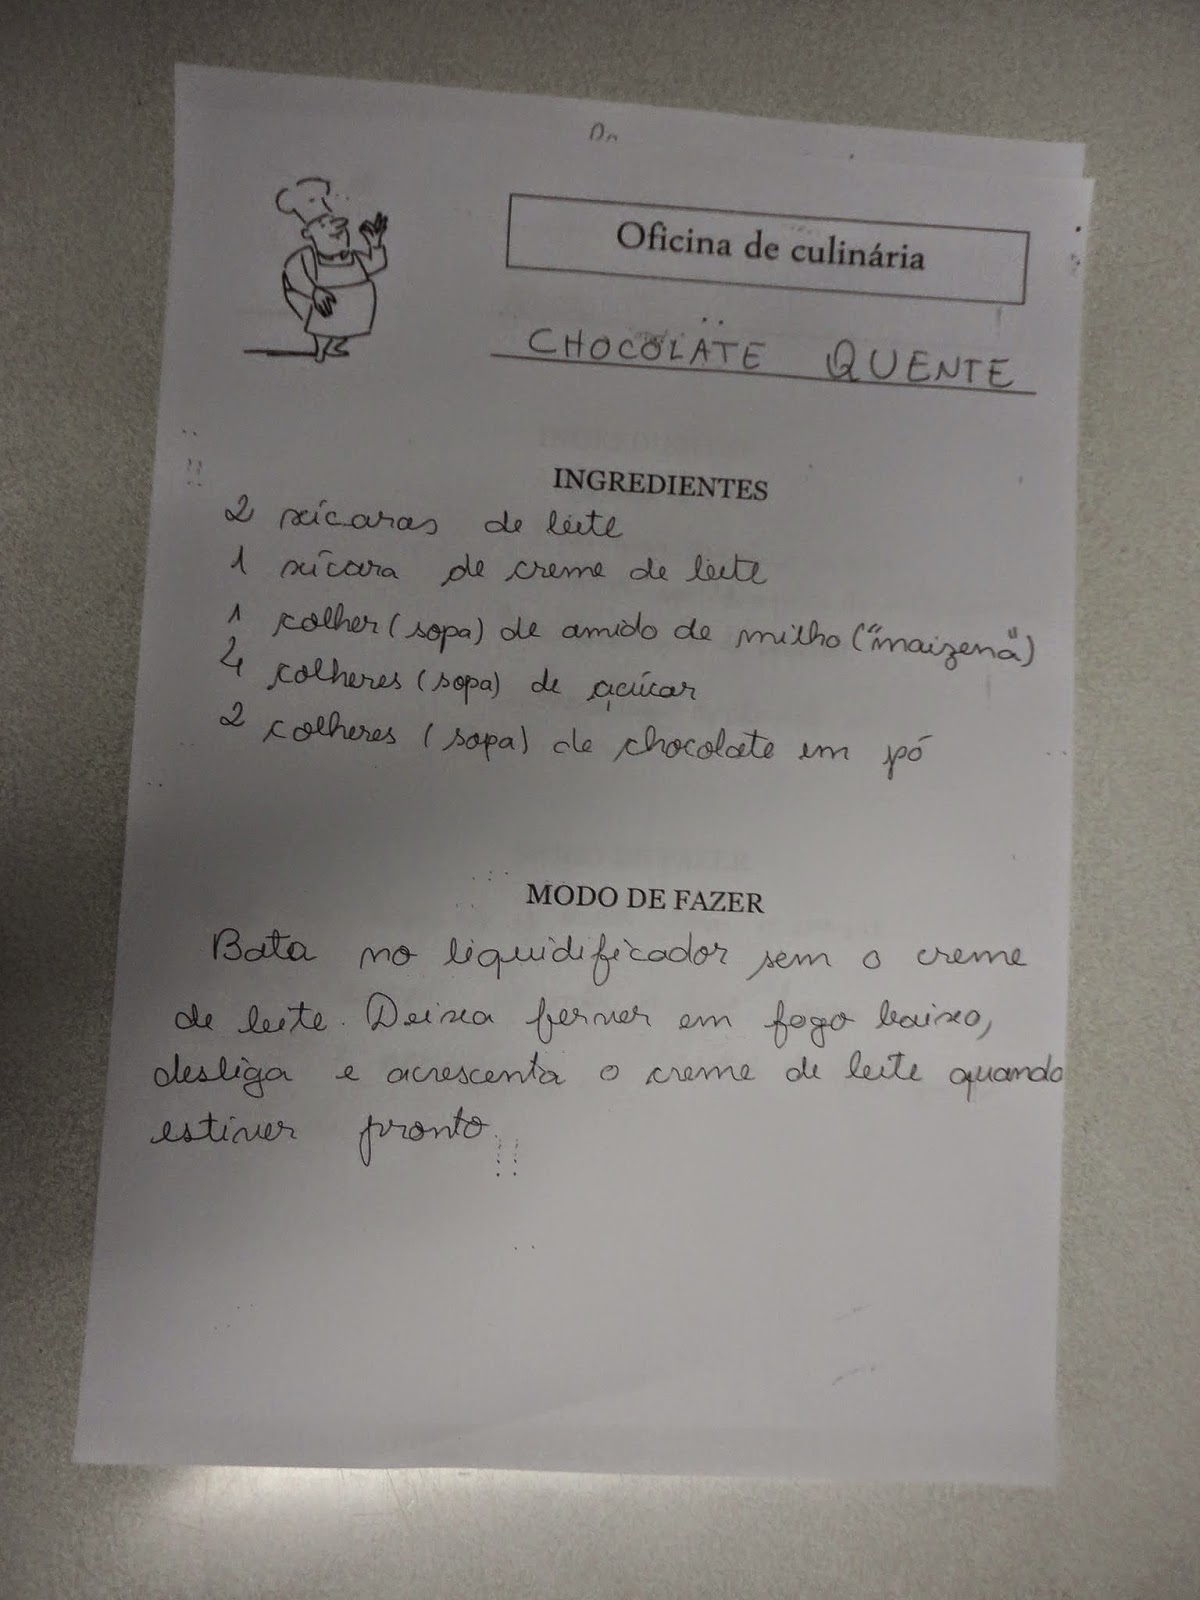 Oficina de culinária
CHOCOLATE QUENTE
INGREDIENTES
2 xícaras de leite
1 xícara de creme de leite
1 colher (sopa) de amido de milho ("maizena")
4 colheres (sopa) de açúcar
2 colheres (sopa) de chocolate em pó
MODO DE FAZER
Bata no liquidificador sem o creme
de leite. Deixa ferver em fogo baixo,
desliga e acrescenta o creme de leite quando
estiver pronto.